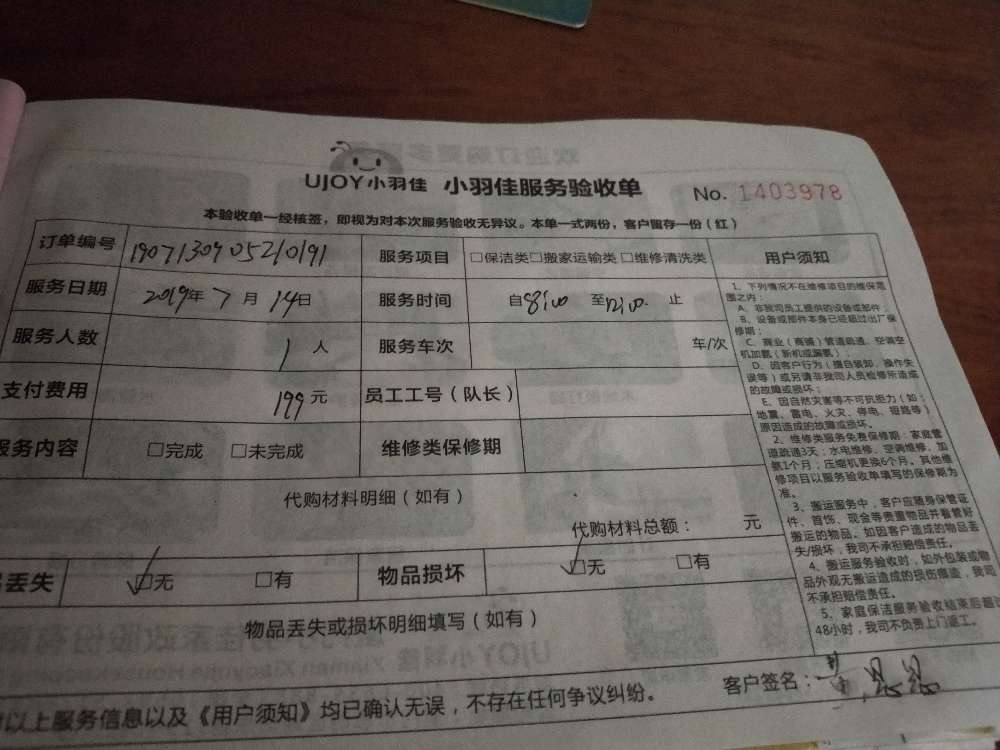 UJOY小羽佳 小羽佳服务验收单 No. 1403978
本验收单一经核签，即视为对本次服务验收无异议。本单一式两份，客户留存一份（红）
订单编号 服务项目 □保洁类□搬家运输类□维修清洗类 用户须知
服务日期 2019年7月14日 服务时间 自8:00 至12:00 止
服务人数 1人 服务车次 车/次
支付费用 199元 员工工号（队长）
服务内容 □完成 □未完成 维修类保修期
代购材料明细（如有）
代购材料总额： 元
丢失 □无 □有 物品损坏 □无 □有
物品丢失或损坏明细填写（如有）
以上服务信息以及《用户须知》均已确认无误，不存在任何争议纠纷。 客户签名：
1、下列情况不在维修项目的维保范
围之内：
A、非我司员工提供的设备或部件；
B、设备或部件本身已经超过出厂保
修期；
C、商业（商铺）管道疏通、空调空
机加氟（新机或漏氟）；
D、因客户行为（擅自装卸、操作失
误等）或另请非我司人员检修所造成
的故障或损坏；
E、因自然灾害等不可抗拒力（如：
地震、雷电、火灾、停电、短路等）
原因造成的故障或损坏。
2、维修类服务免费保修期：家庭管
道疏通3天；水电维修、空调维修、加
氟1个月；压缩机更换6个月。其他维
修项目以服务验收单填写的保修期为
准。
3、搬运服务中，客户应随身保管证
件、首饰、现金等贵重物品并看管好
搬运的物品。如因客户造成的物品丢
失/损坏，我司不承担赔偿责任。
4、搬运服务验收时，如外包装或物
品外观无搬运造成的损伤痕迹，我司
不承担赔偿责任。
5、家庭保洁服务验收结束后超
48小时，我司不负责上门返工。